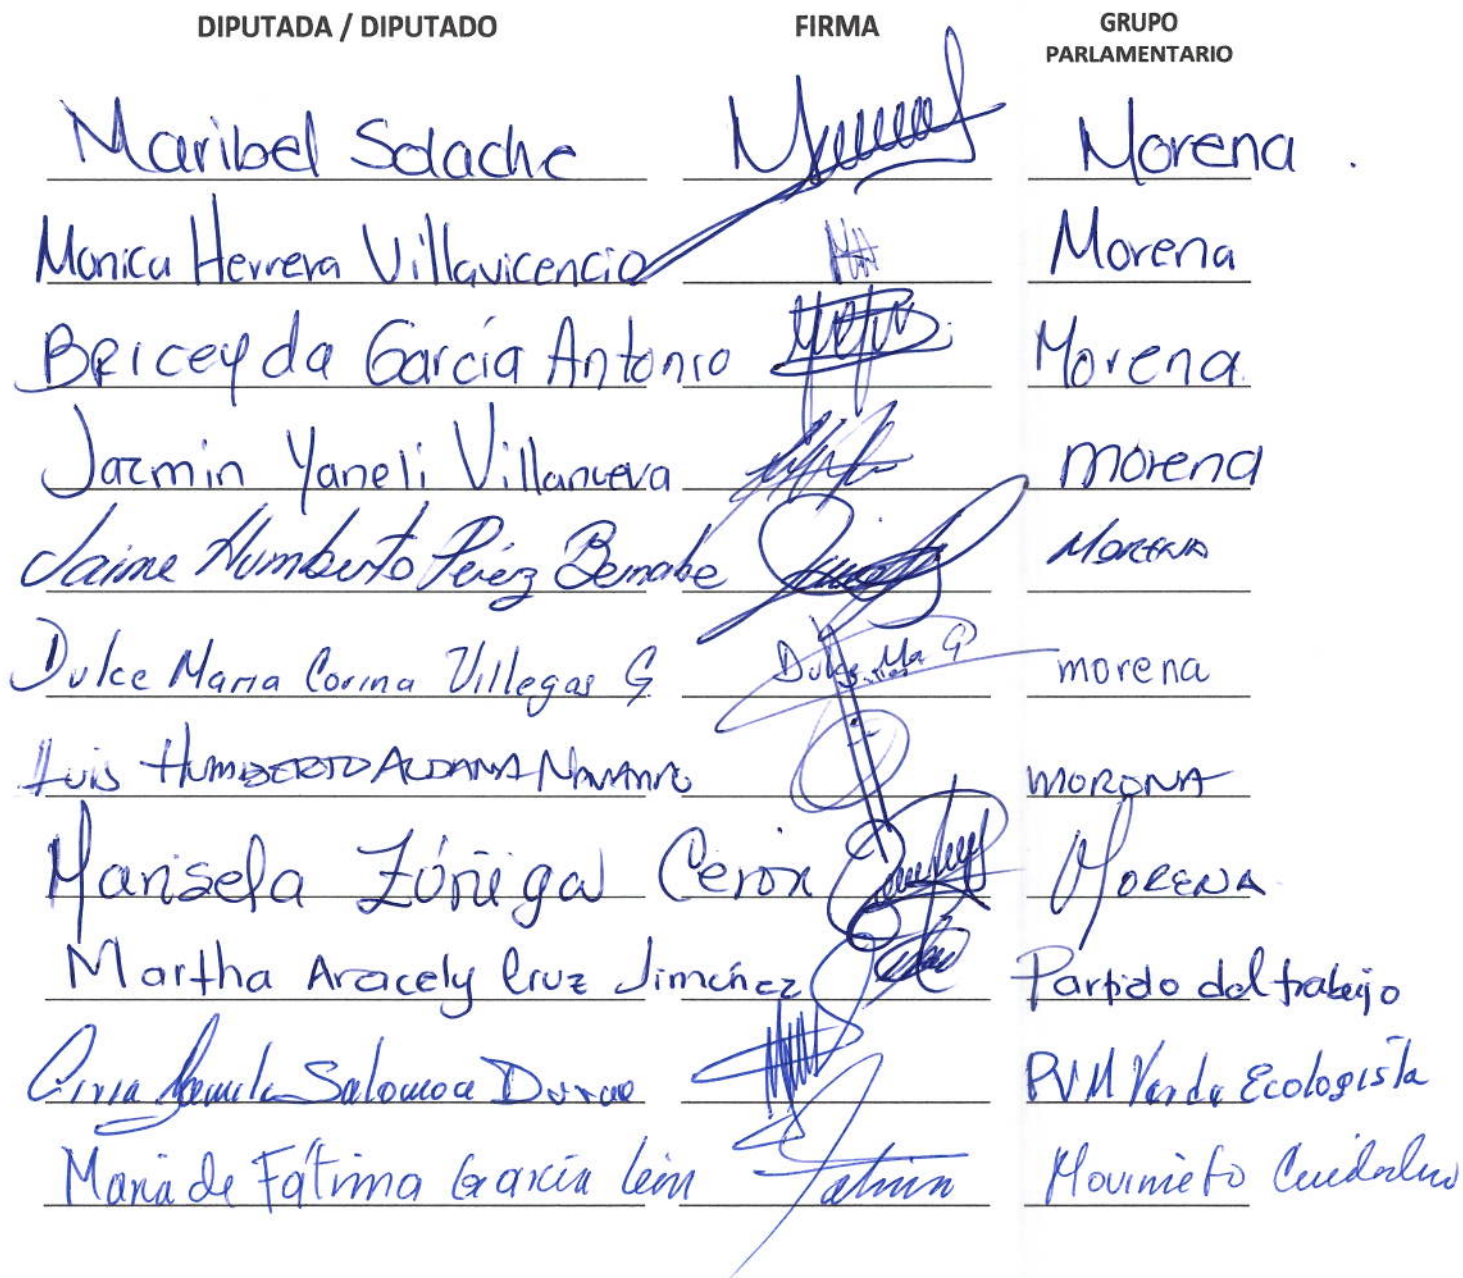 DIPUTADA / DIPUTADO FIRMA GRUPO PARLAMENTARIO
Maribel Solache Morena
Monica Herrera Villavicencio MH Morena
Briceyda García Antonio Morena
Jazmin Yaneli Villanueva morena
Jaime Humberto Pérez Bernabe MORENA
Dulce Maria Corina Villegas G Dulce Ma G morena
Luis HUMBERTO ALDANA NAVARRO MORENA
Marisela Zúñiga Cerón MORENA
Martha Aracely Cruz Jiménez Partido del trabajo
Salomoa Duran PVM Verde Ecologista
Maria de Fátima García León Fatima Movimieto Ciudadano